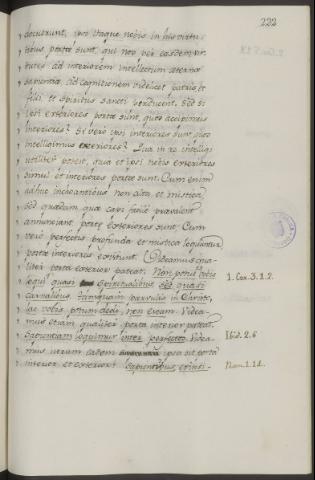 222
docuerunt, ipsi utique nobis in suis virtu-
tibus portæ sunt, qui nos per easdem vir-
tutes ad interiorem intellectum æterno
ad cognitionem videlicet patris et
filii, et spiritus sancti perducunt. Sed si
ipsi exteriores portæ sunt, quos accipimus
interiores? Si vero ipsi interiores sunt, quos
intelligimus exteriores? Qua in re intelligi
utiliter potest, quia et ipsi nobis exteriores
simul et interiores portæ sunt. Cum enim
adhuc inchoantibus non alta, et mistica
sed quædam quæ capi facile prævaleant
annunciant portæ exteriores sunt. Cum
vero perfectis profunda et mistica loquuntur
portæ interiores existunt. Videamus qua-
liter porta exterior pateat. Non potui vobis
loqui quasi spiritualibus sed quasi
carnalibus. tamquam parvulis in Christo,
lac vobis potum dedi, non escam. Videa-
mus etiam qualiter porta interior pateat.
Sapientiam loquimur inter perfectos. Videa-
mus utrum eadem ipsa sit porta
interior et exterior. Sapientibus, et insi-
1. Cor. 3. 1. 2.
Ibid. 2. 6
Rom. 1. 14.